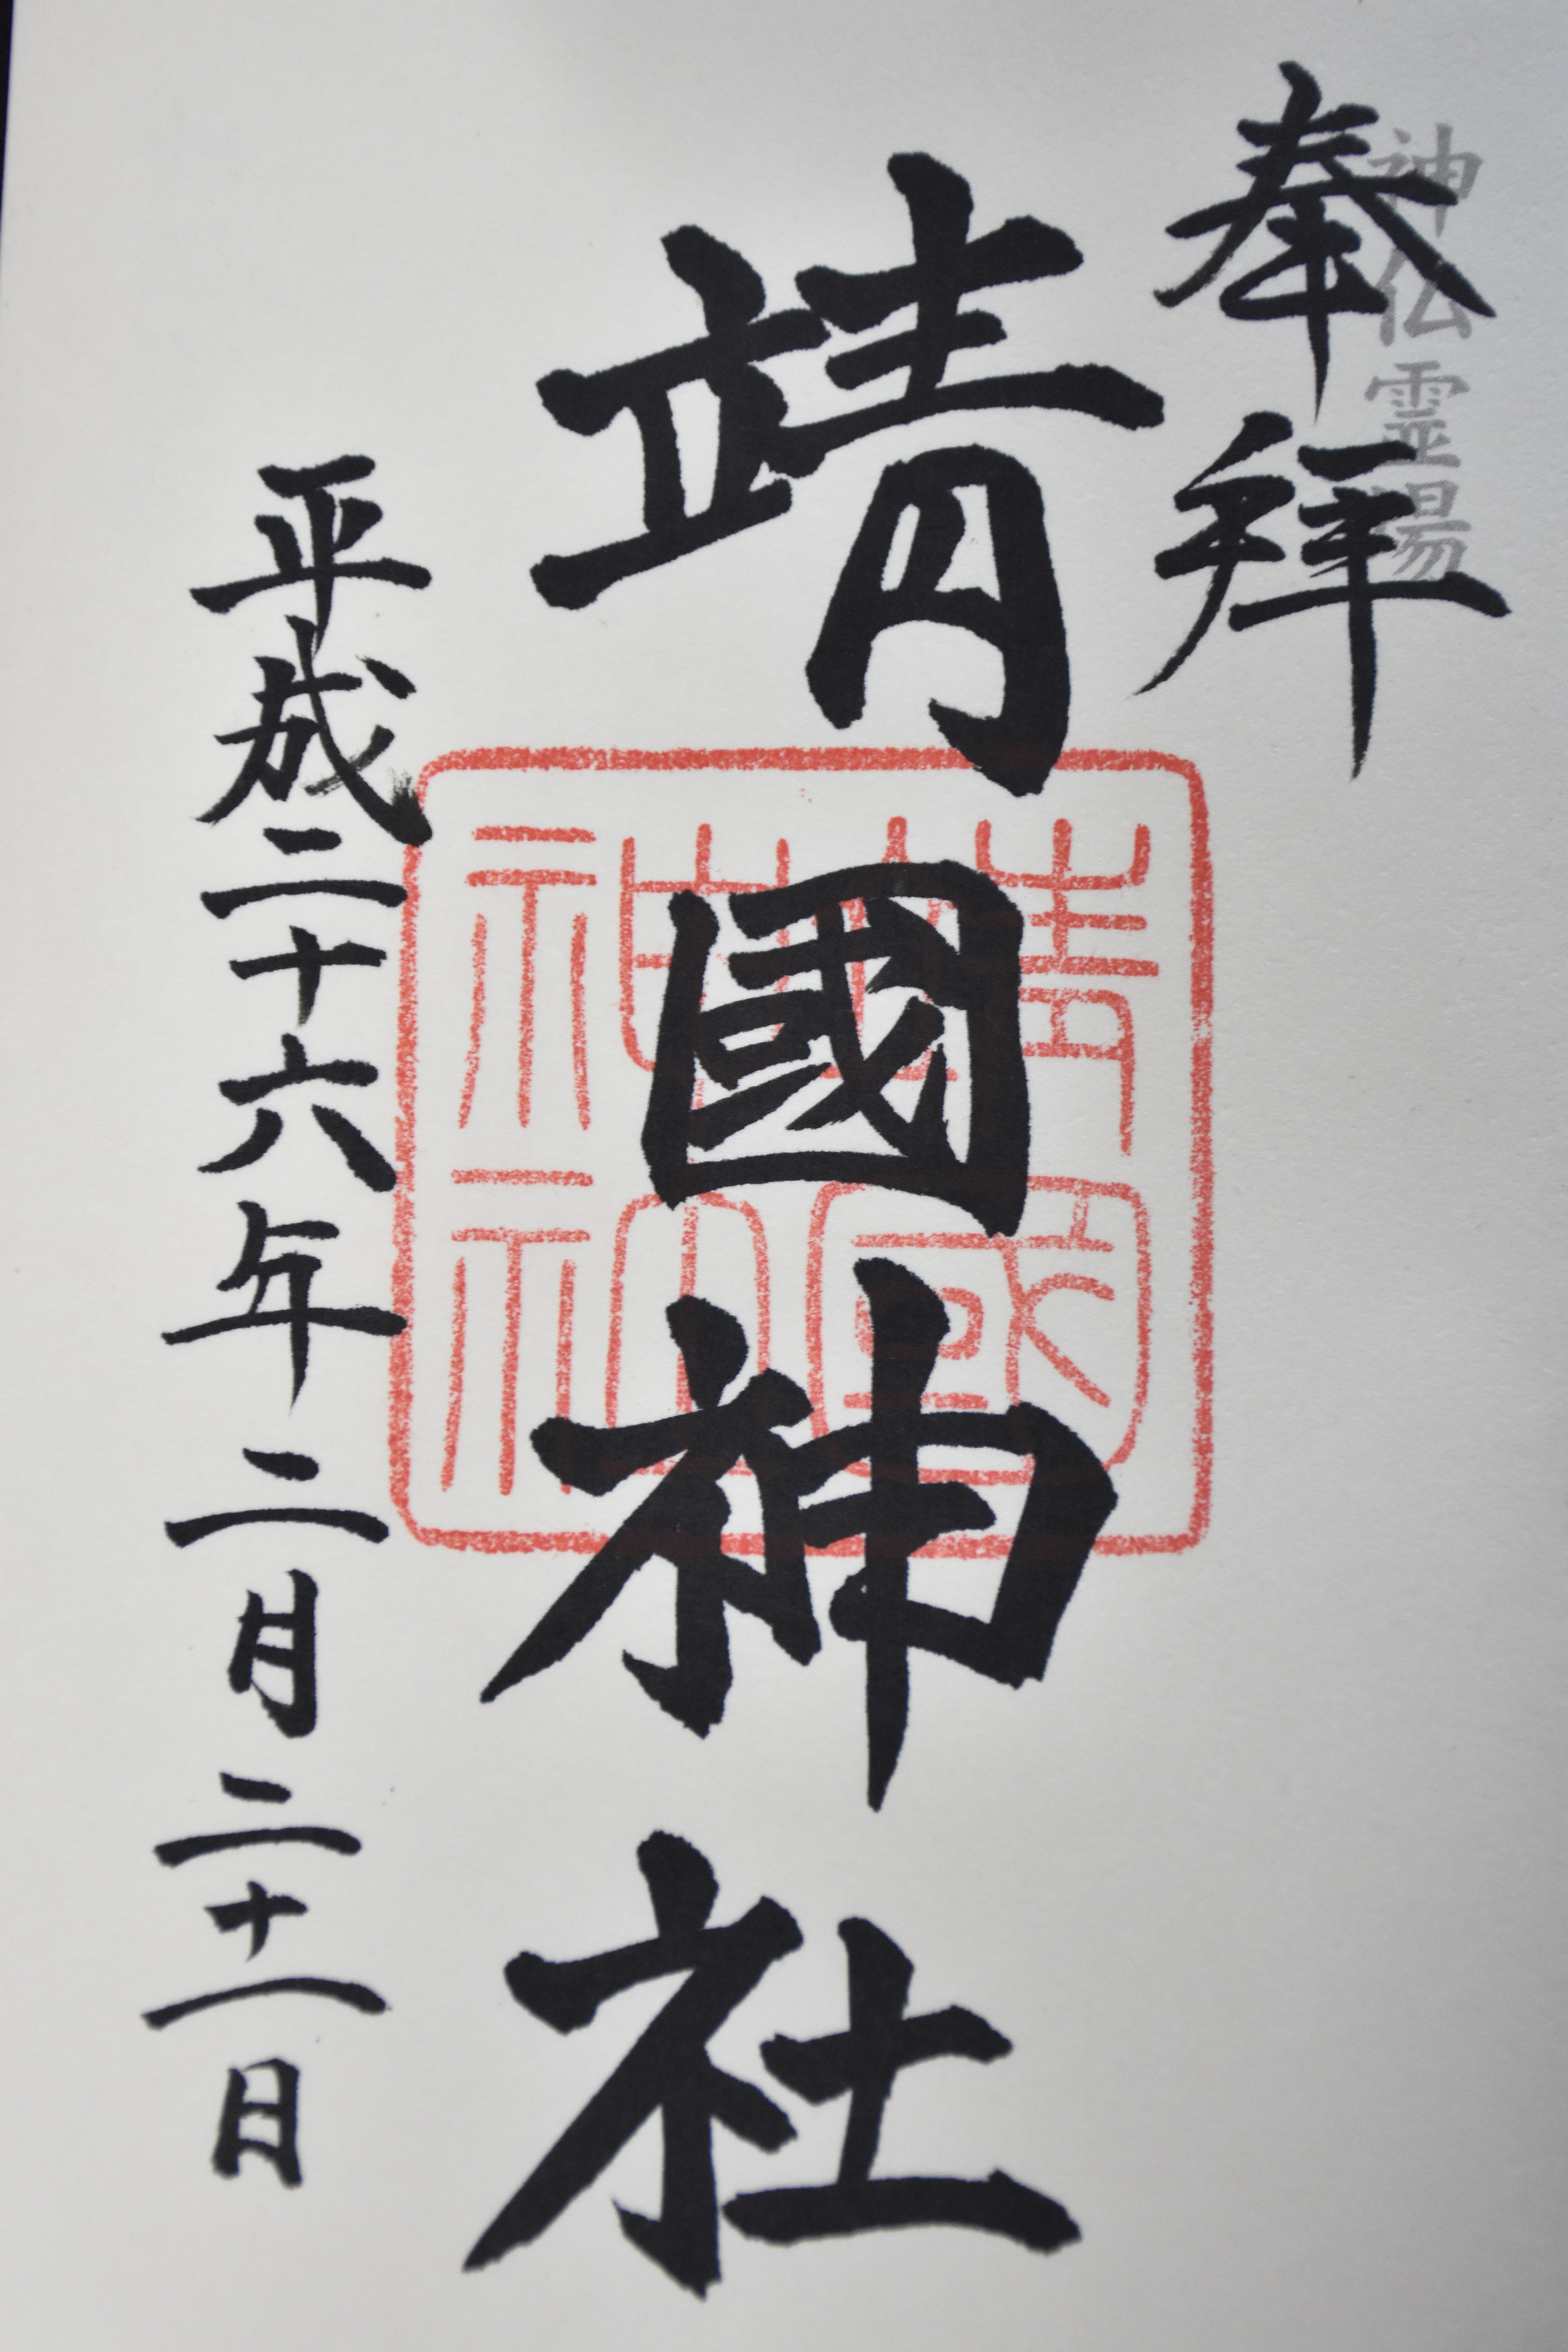 神仏霊場
奉拝
靖國神社
靖國神社
平成二十六年二月二十一日